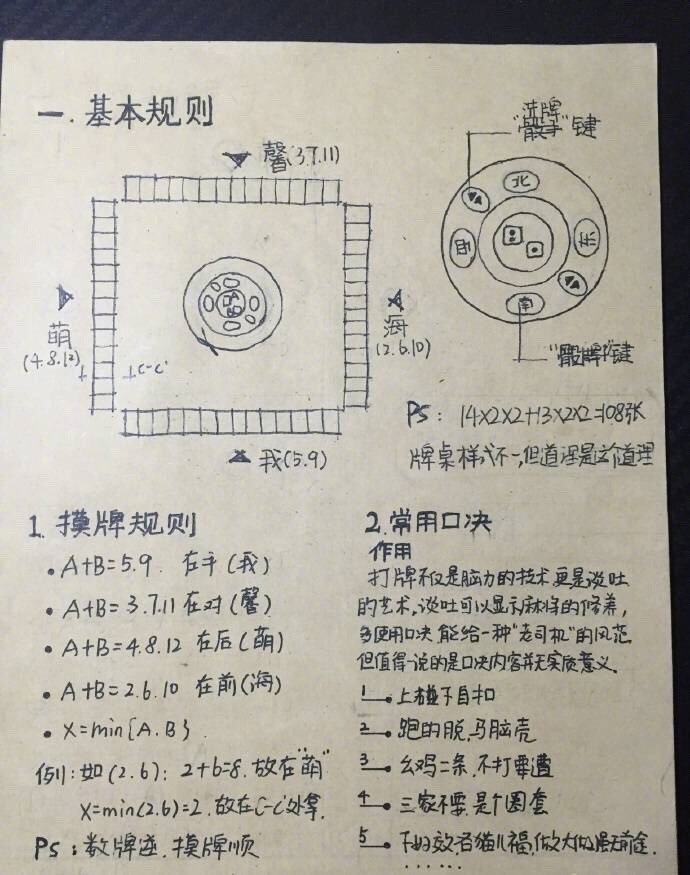 一.基本规则
馨(3.7.11)
萌
(4.8.12)
C-C'
海
(2.6.10)
我(5.9)
洗牌
"骰子"键
北
西
东
南
"骰牌"键
PS: 14×2×2+13×2×2=108张
牌桌样式不一,但道理是这个道理
1.摸牌规则
• A+B=5.9. 在手(我)
• A+B=3.7.11 在对(馨)
• A+B=4.8.12 在后(萌)
• A+B=2.6.10 在前(海)
• X=min{A.B}
例1:如(2.6): 2+6=8.放在"萌"
X=min(2.6)=2.放在C-C'处拿.
PS:数牌逆.摸牌顺
2.常用口决
作用
打牌不仅是脑力的技术更是谈吐
的艺术,谈吐可以显示麻将的修养,
多使用口决 能给一种"老司机"的风范
但值得一说的是口决内容并无实质意义.
1 上碰下自扣
2 跑的脱,马脑壳
3 幺鸡二条,不打要遭
4 三家不要.是个圈套
5 猫儿福,做大做
......